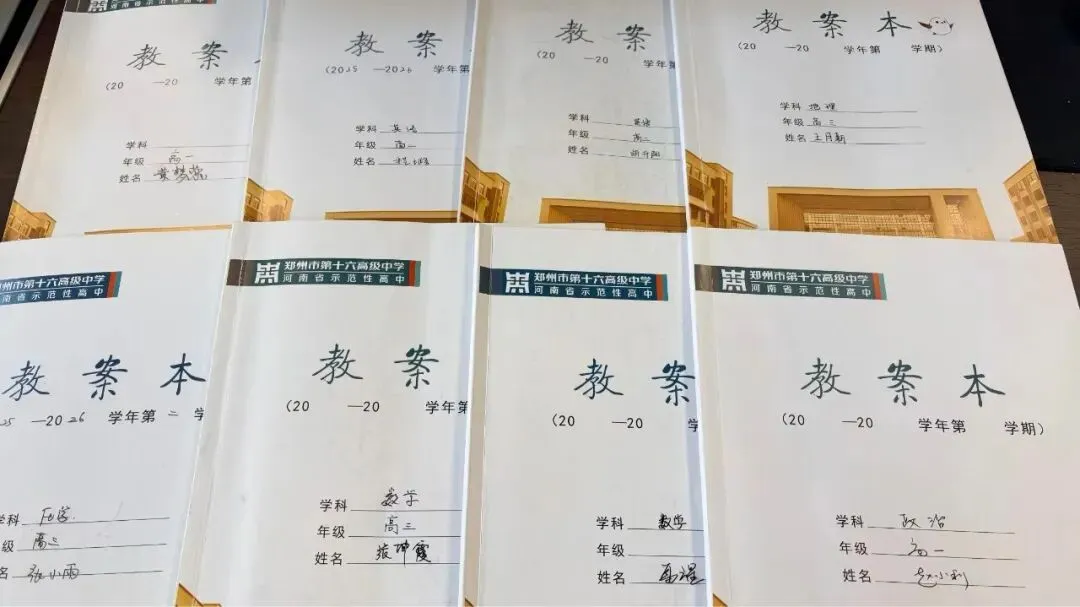 河南省示范性高中
教 案
(20 —20 学年第
学科
年级 高一
姓名
教 案
(2025 —2026 学年第
学科 英语
年级 高一
姓名
教 案
(20 —20 学年第
学科 英语
年级 高二
姓名
教 案 本
(20 —20 学年第 学期)
学科 地理
年级 高三
姓名 王肖新
郑州市第十六高级中学
河南省示范性高中
教 案 本
25 —2026 学年第 二 学
学科 历史
级 高三
名 张小雨
郑州市第十六高级中学
河南省示范性高中
教 案
(20 —20 学年第
学科 数学
年级 高三
姓名 张坤霞
郑州市第十六高级中学
河南省示范性高中
教 案
(20 —20 学
学科 数学
年级
姓名
郑州市第十六高级中学
河南省示范性高中
教 案 本
(20 —20 学年第 学期)
学科 政治
年级 高一
姓名 赵小利